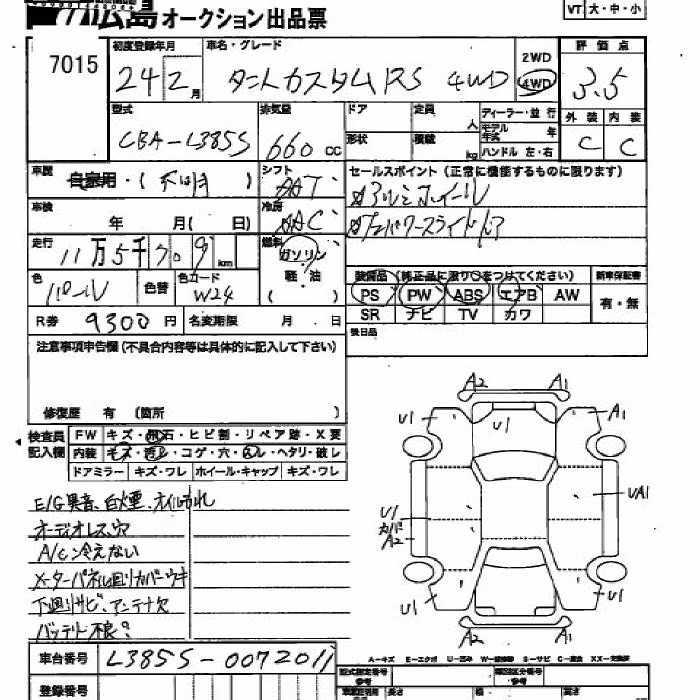 広島 オークション出品票
VT 大・中・小
7015
初度登録年月
24 2月
車名・グレード
タントカスタムRS 4WD
2WD
4WD
評価点
3.5
型式
CBA-L385S
排気量
660 cc
ドア
形状
定員
人
積載
kg
ディーラー・並行
モデル年式 年
ハンドル 左・右
外装 内装
C C
車歴
自家用・(不明)
シフト
AAT
セールスポイント(正常に機能するものに限ります)
アルミホイール
パワースライドドア
車検
年 月( 日)
冷房
AAC
走行
11万5千709km
燃料
ガソリン
軽・油
( )
色
パール
色替
色カード
W24
装備品(純正品に限り○をつけてください)
新車保証書
PS PW ABS エアB AW
有・無
SR ナビ TV カワ
R券 9300円 名変期限 月 日
後日品
注意事項申告欄(不具合内容等は具体的に記入して下さい)
修復歴 有(箇所 )
検査員記入欄
FW キズ・飛石・ヒビ割・リペア跡・X要
内装 キズ・汚レ・コゲ・穴・ヘタリ・破レ
ドアミラー キズ・ワレ ホイール・キャップ キズ・ワレ
E/G異音、白煙、オイルもれ
オーディオレス、穴
A/C冷えない
メーターパネル回りカバーウキ
下回りサビ、アンテナ欠
バッテリー不良?
A2 A1
U1 U1 A1
U1
カバド
A2
UA1
U1 U1
A2 A1
A－キズ E－エクボ U－凹み S－サビ XX－交換済
車台番号 L385S-0072011
登録番号
型式指定番号
類別区分番号
長さ 幅 高さ